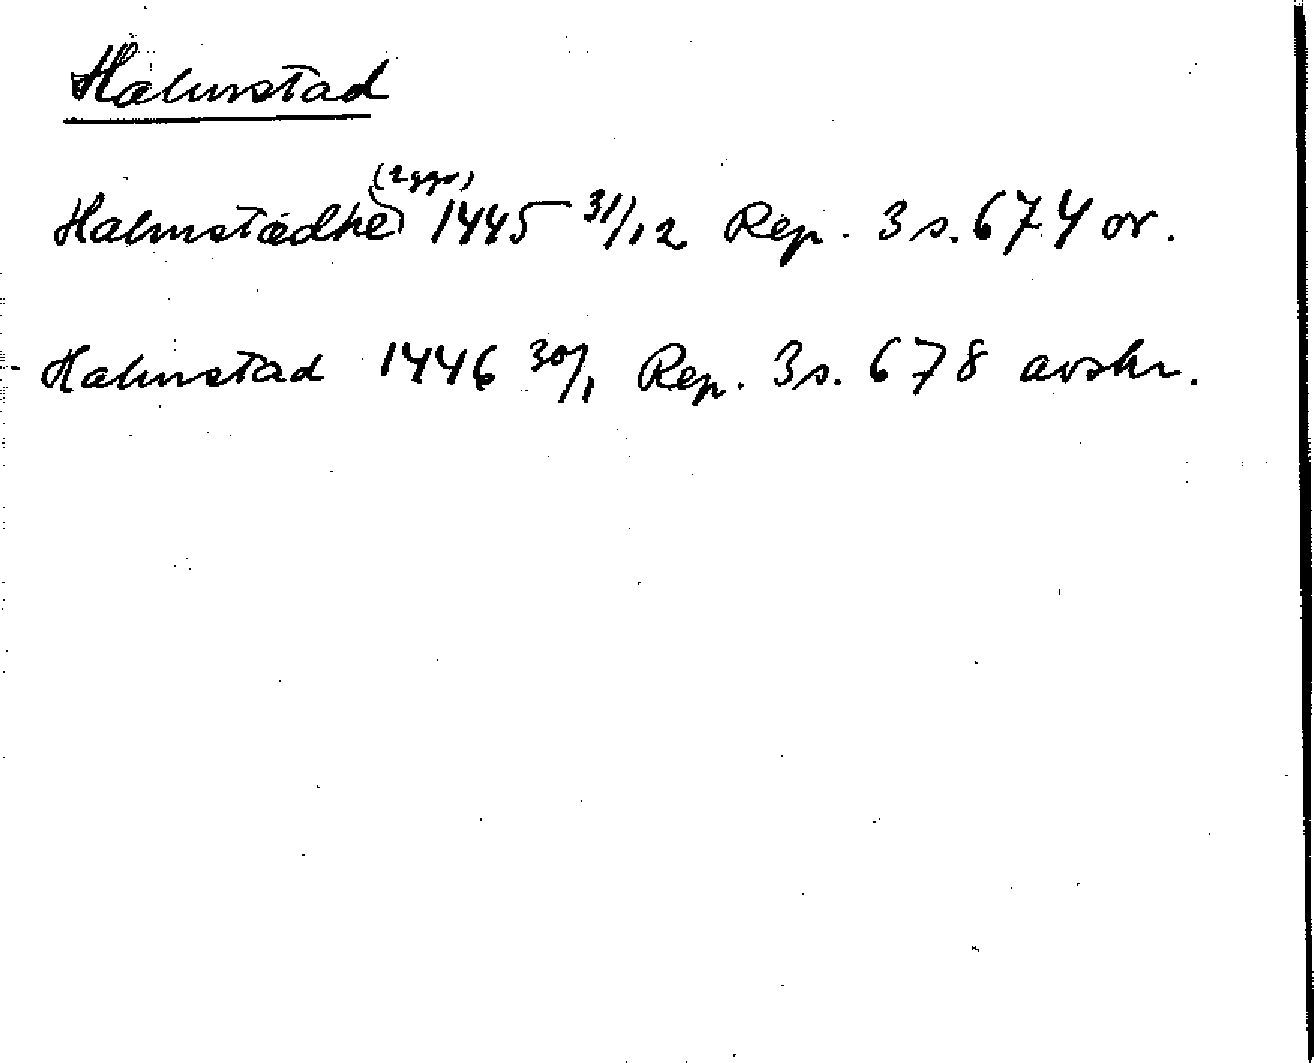 Halmstad
(2 ggr)
Halmstædhe 1445 31/12 Rep. 3 s. 674 or.
Halmstad 1446 30/1 Rep. 3 s. 678 avskr.